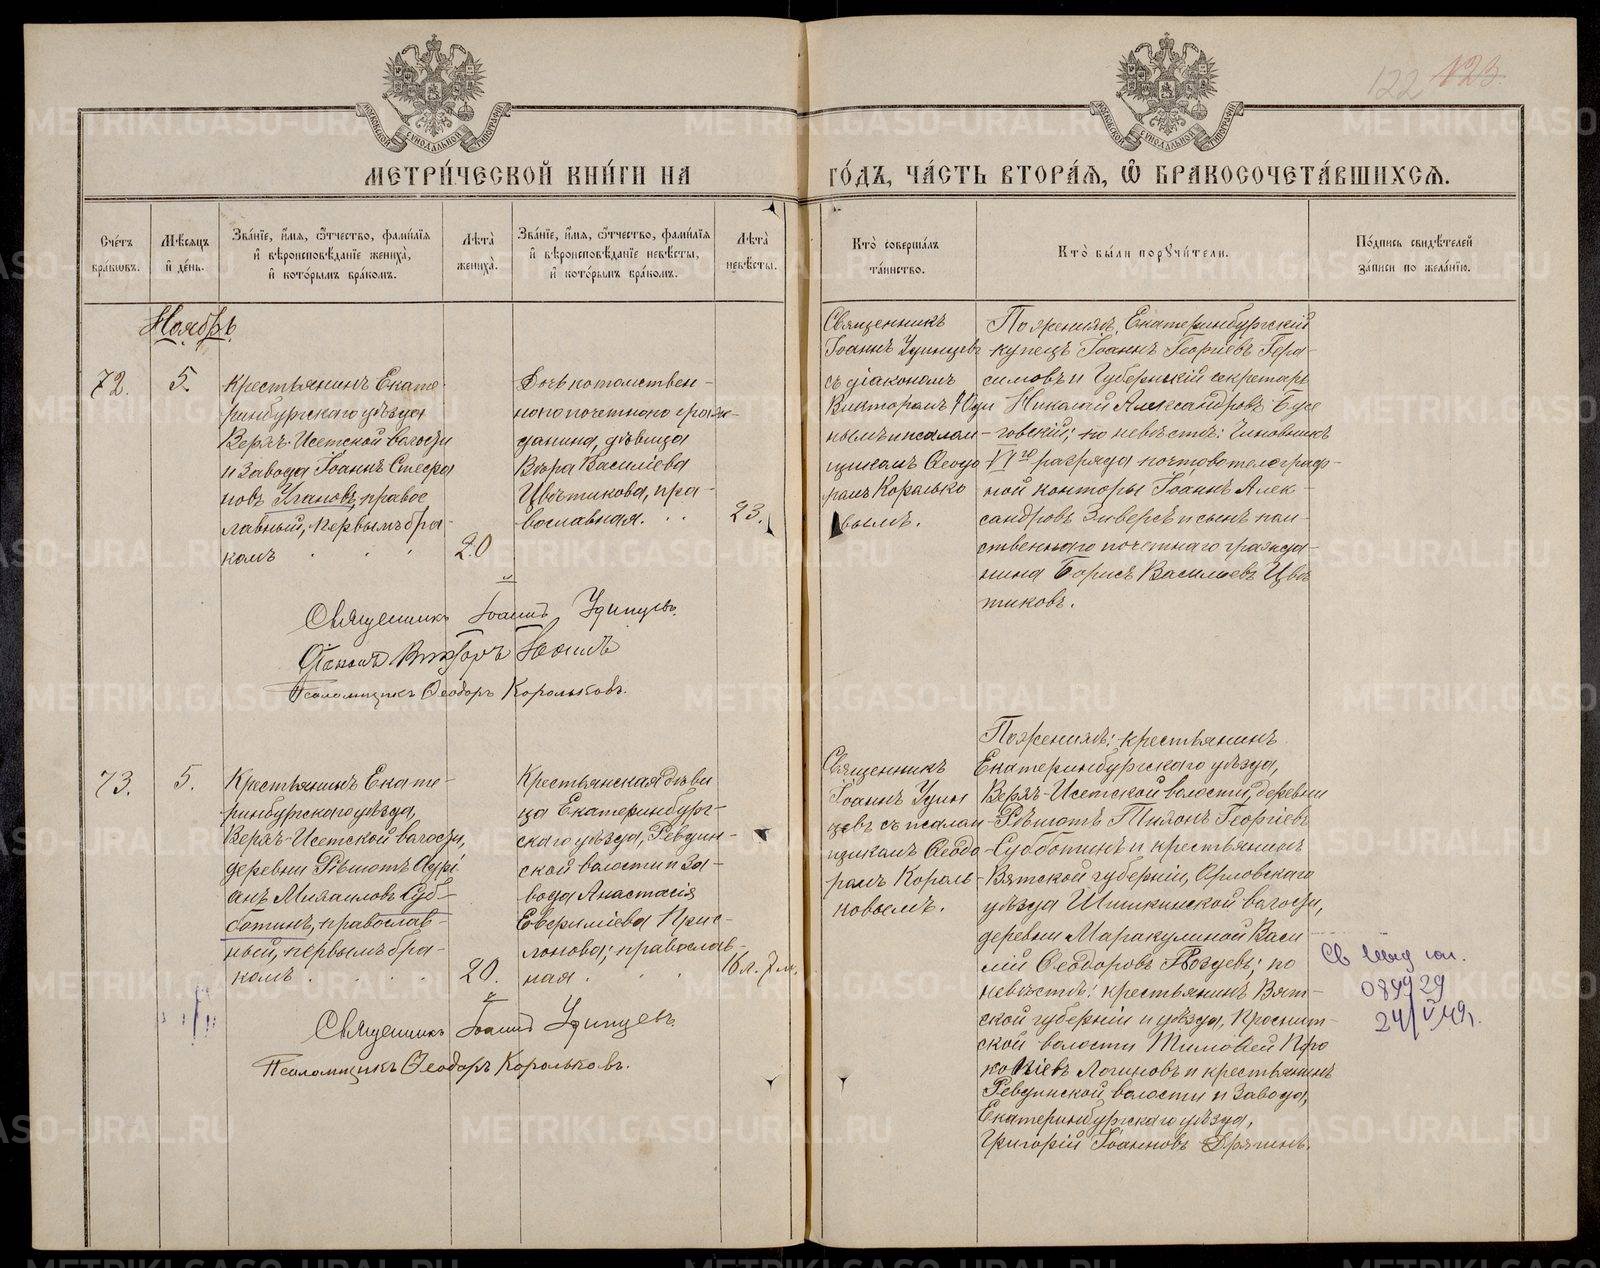 122 123.
МЕТРИ́ЧЕСКОЙ КНИ́ГИ НА
ГО́ДЪ, ЧА́СТЬ ВТОРА́Я, Ѡ БРАКОСОЧЕТА́ВШИХСЯ.
Сче́тъ бра́ковъ.
Мѣ́сяцъ и҆ де́нь.
Зва́нїе, и҆́мя, ѻ҆́тчество, фами́лїя
и҆ вѣроисповѣ́данїе жениха̀,
и҆ кото́рымъ бра́комъ.
Лѣ́та жениха̀.
Зва́нїе, и҆́мя, ѻ҆́тчество, фами́лїя
и҆ вѣроисповѣ́данїе невѣ́сты,
и҆ кото́рымъ бра́комъ.
Лѣ́та невѣ́сты.
Кто̀ соверша́лъ
та́инство.
Кто̀ бы́ли порꙋчи́тели.
По́дпись свидѣ́телей
за́писи по жела́нїю.
Ноябрь
72.
5.
Крестьянинъ Екате-
ринбургскаго уѣзда
Верхъ-Исетской волости
и завода Іоаннъ Стефа
новъ Угановъ, правос
лавный, первымъ бра-
комъ
20
Дочь потомствен-
наго почетнаго граж-
данина, дѣвица
Вѣра Василіева
Цвѣтикова, пра-
вославная.
23.
Священникъ
Іоаннъ Удинцевъ
съ діакономъ
Викторомъ Юди
нымъ и псалом-
щикомъ Ѳеодо
ромъ Королько
вымъ.
По женихѣ: Екатеринбургскій
купецъ Іоаннъ Георгіевъ Гера-
симовъ и Губернскій секретарь
Николай Александровъ Бусе
говскій; по невѣстѣ: чиновникъ
VI го разряда почтово телеграф-
ной конторы Іоаннъ Алек-
сандровъ Зиверсъ и сынъ пот-
ственнаго почетнаго гражда-
нина Борисъ Васильевъ Цвѣ
тиковъ.
Священникъ Іоаннъ Удинцевъ.
Діаконъ Викторъ Юдинъ
Псаломщикъ Ѳеодоръ Корольковъ.
73.
5.
Крестьянинъ Екате-
ринбургскаго уѣзда,
Верхъ-Исетской волости,
деревни Рѣшотъ Адрі
анъ Михаиловъ Суб-
ботинъ, православ-
ный, первымъ бра-
комъ
20.
Крестьянская дѣви
ца Екатеринбург-
скаго уѣзда, Ревдин-
ской волости и за-
вода Анастасія
Евфиміева
православ-
ная
16 л. 7 м.
Священникъ
Іоаннъ Удин
цевъ съ псалом-
щикомъ Ѳеодо
ромъ Король-
ковымъ.
По женихѣ: крестьянинъ
Екатеринбургскаго уѣзда,
Верхъ-Исетской волости, деревни
Рѣшотъ Георгіевъ
Субботинъ и крестьянинъ
Вятской губерніи, Орловскаго
уѣзда Шишкинской волости,
деревни Маракулиной Васи
лій Ѳеодоровъ по
невѣстѣ: крестьянинъ Вят-
ской губерніи и уѣзда,
ской волости Тимоѳей Про
копіевъ Логиновъ и крестьянинъ
Ревдинской волости и завода,
Екатеринбургскаго уѣзда,
Григорій Іоанновъ Дрягинъ.
Священникъ Іоаннъ Удинцевъ
Псаломщикъ Ѳеодоръ Корольковъ.
Св
24/V 49 г.
METRIKI.GASO-URAL.RU